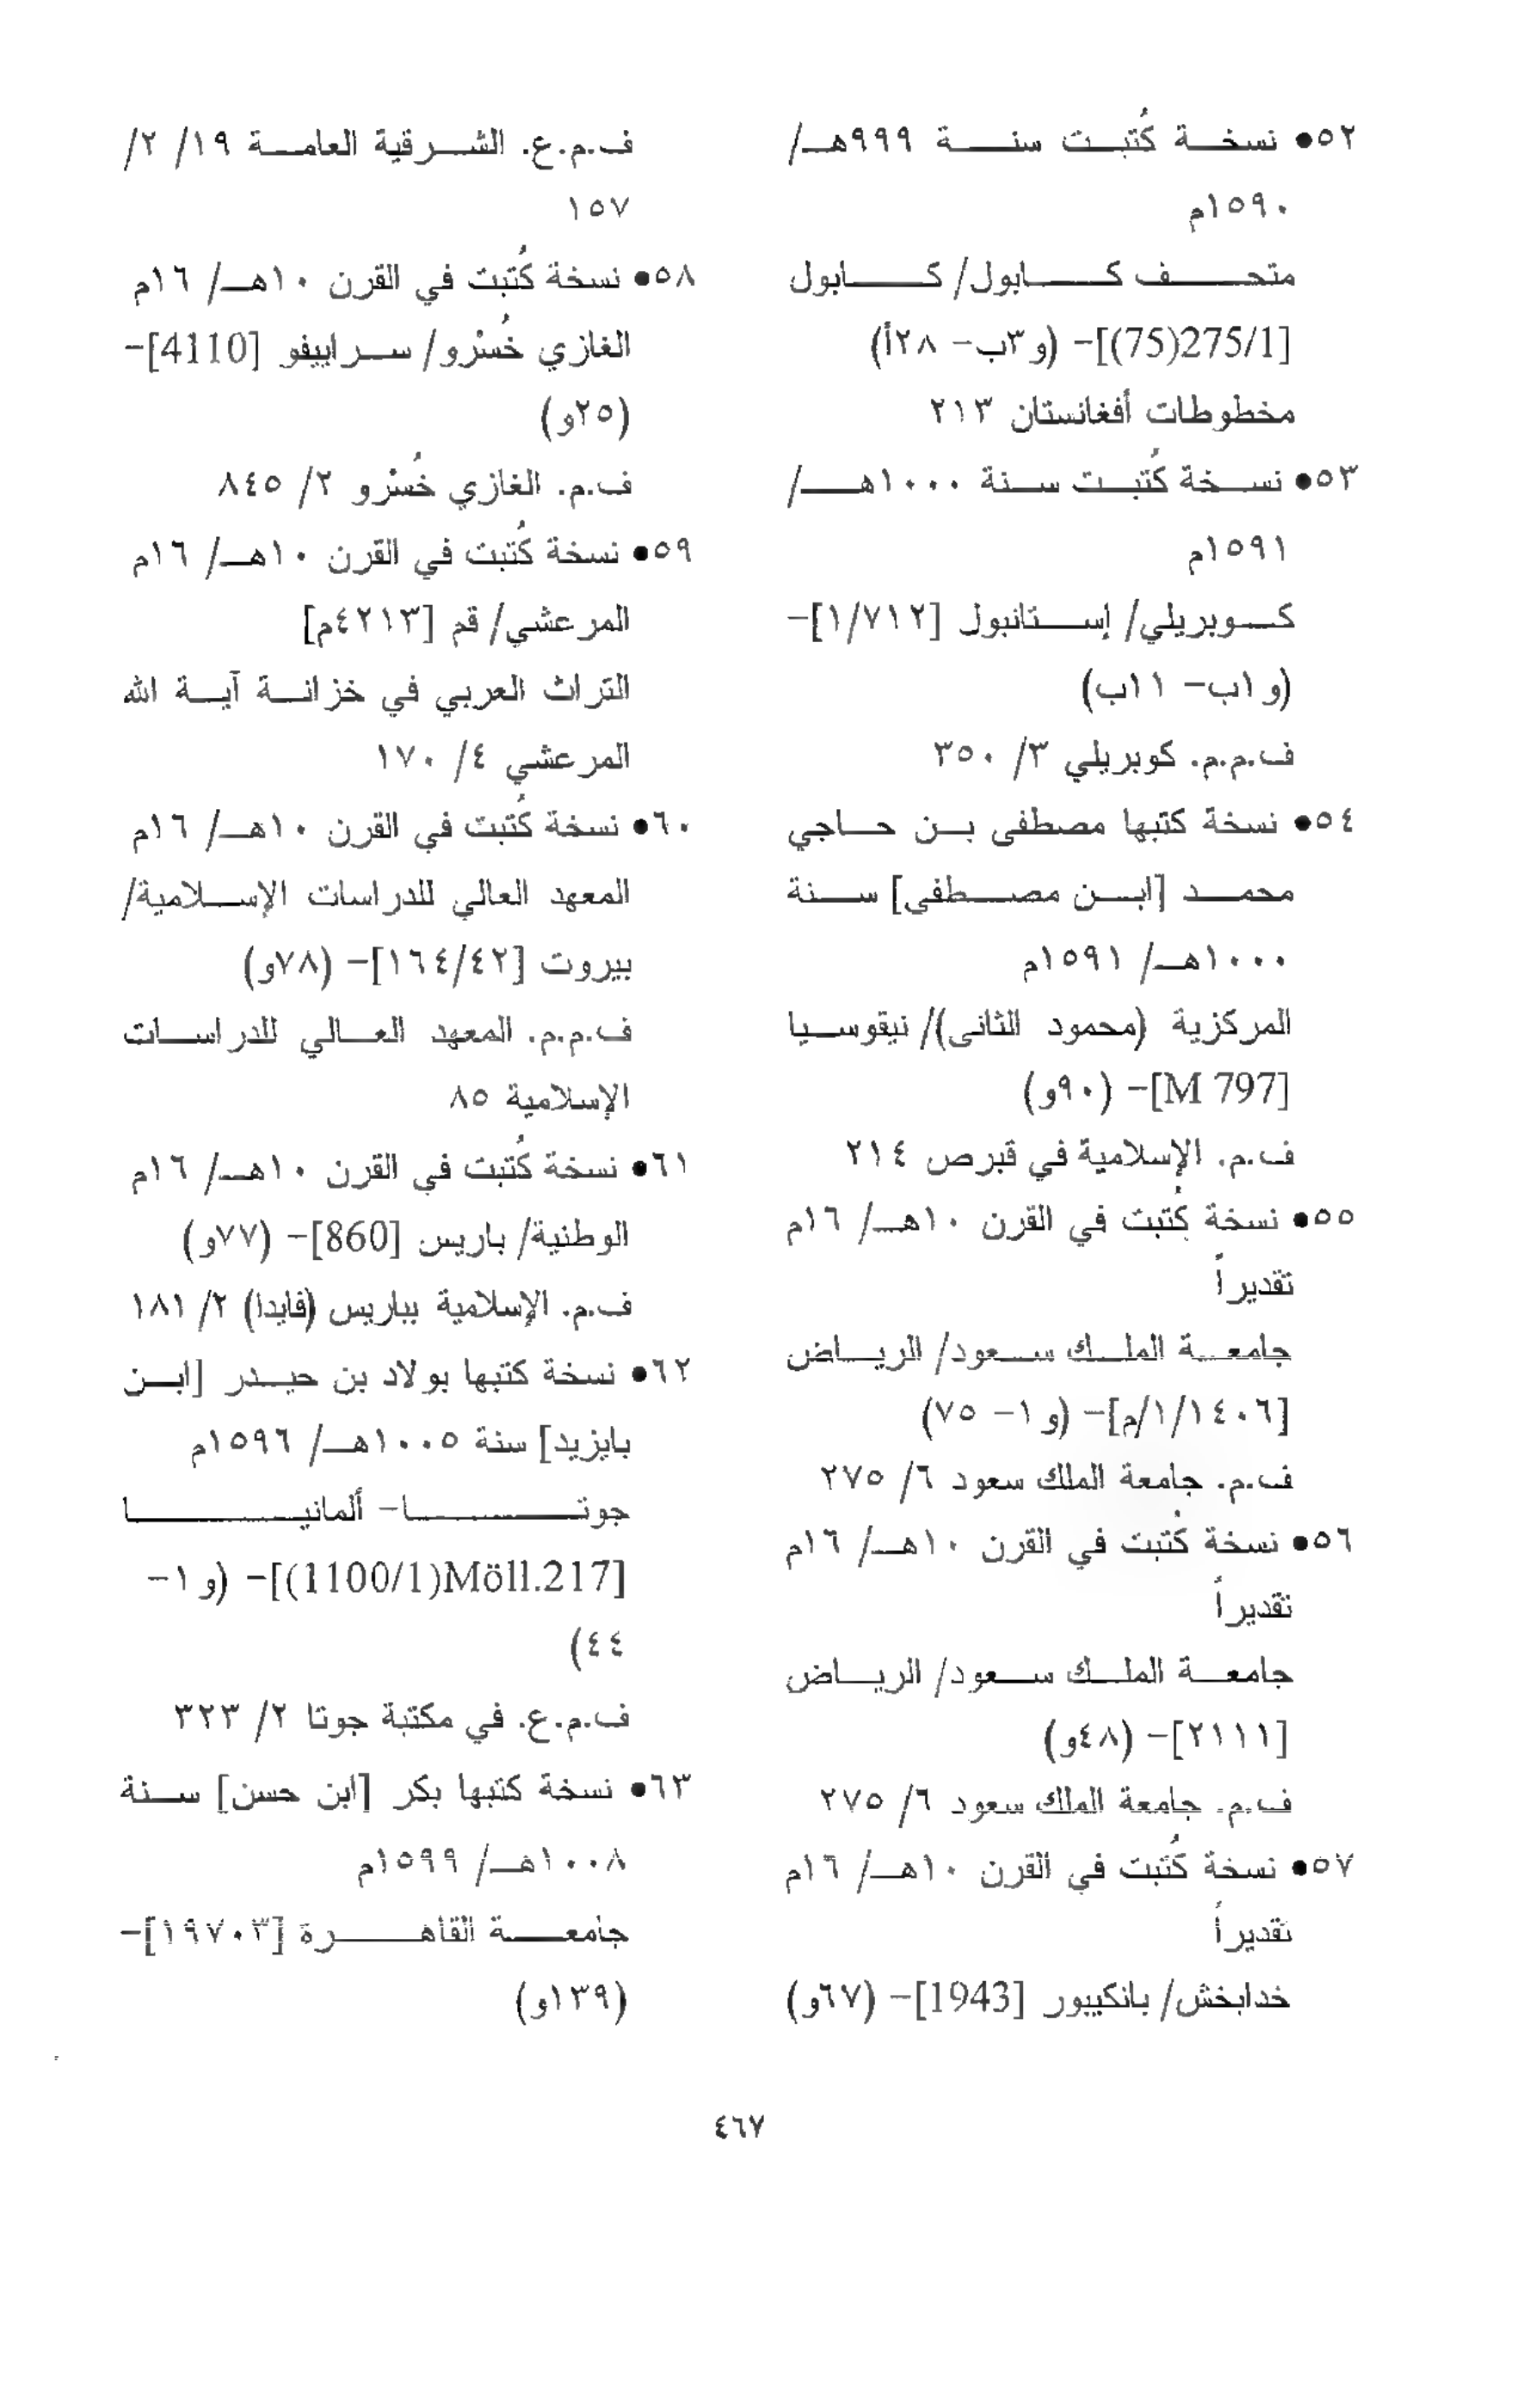 ٥٢● نسخة كُتبت سنة ٩٩٩هـ/
١٥٩٠م
متحف كابول/ كابول
[275/1(75)]- (و٣ب- ٢٨أ)
مخطوطات أفغانستان ٢١٣
٥٣● نسخة كُتبت سنة ١٠٠٠هـ/
١٥٩١م
كوبريلي/ إستانبول [١/٧١٢]-
(و١ب- ١١ب)
ف.م.م. كوبريلي ٣/ ٣٥٠
٥٤● نسخة كتبها مصطفى بن حاجي
محمد [ابن مصطفى] سنة
١٠٠٠هـ/ ١٥٩١م
المركزية (محمود الثانى)/ نيقوسيا
[M 797]- (٩٠و)
ف.م. الإسلامية في قبرص ٢١٤
٥٥● نسخة كُتبت في القرن ١٠هـ/ ١٦م
تقديراً
جامعة الملك سعود/ الرياض
[١/١٤٠٦/م]- (و١- ٧٥)
ف.م. جامعة الملك سعود ٦/ ٢٧٥
٥٦● نسخة كُتبت في القرن ١٠هـ/ ١٦م
تقديراً
جامعة الملك سعود/ الرياض
[٢١١١]- (٤٨و)
ف.م. جامعة الملك سعود ٦/ ٢٧٥
٥٧● نسخة كُتبت في القرن ١٠هـ/ ١٦م
تقديراً
خدابخش/ بانكيبور [1943]- (٦٧و)
ف.م.ع. الشرقية العامة ١٩/ ٢/
١٥٧
٥٨● نسخة كُتبت في القرن ١٠هـ/ ١٦م
الغازي خُسْرو/ سراييفو [4110]-
(٢٥و)
ف.م. الغازي خُسْرو ٢/ ٨٤٥
٥٩● نسخة كُتبت في القرن ١٠هـ/ ١٦م
المرعشي/ قم [٤٢١٣م]
التراث العربي في خزانة آية الله
المرعشي ٤/ ١٧٠
٦٠● نسخة كُتبت في القرن ١٠هـ/ ١٦م
المعهد العالي للدراسات الإسلامية/
بيروت [١٦٤/٤٢]- (٧٨و)
ف.م.م. المعهد العالي للدراسات
الإسلامية ٨٥
٦١● نسخة كُتبت في القرن ١٠هـ/ ١٦م
الوطنية/ باريس [860]- (٧٧و)
ف.م. الإسلامية بباريس (فايدا) ٢/ ١٨١
٦٢● نسخة كتبها بولاد بن حيدر [ابن
بايزيد] سنة ١٠٠٥هـ/ ١٥٩٦م
جوتا- ألمانيا
[Möll.217(1100/1)]- (و١-
٤٤)
ف.م.ع. في مكتبة جوتا ٢/ ٣٢٣
٦٣● نسخة كتبها بكر [ابن حسن] سنة
١٠٠٨هـ/ ١٥٩٩م
جامعة القاهرة [١٩٧٠٣]-
(١٣٩و)
٤٦٧